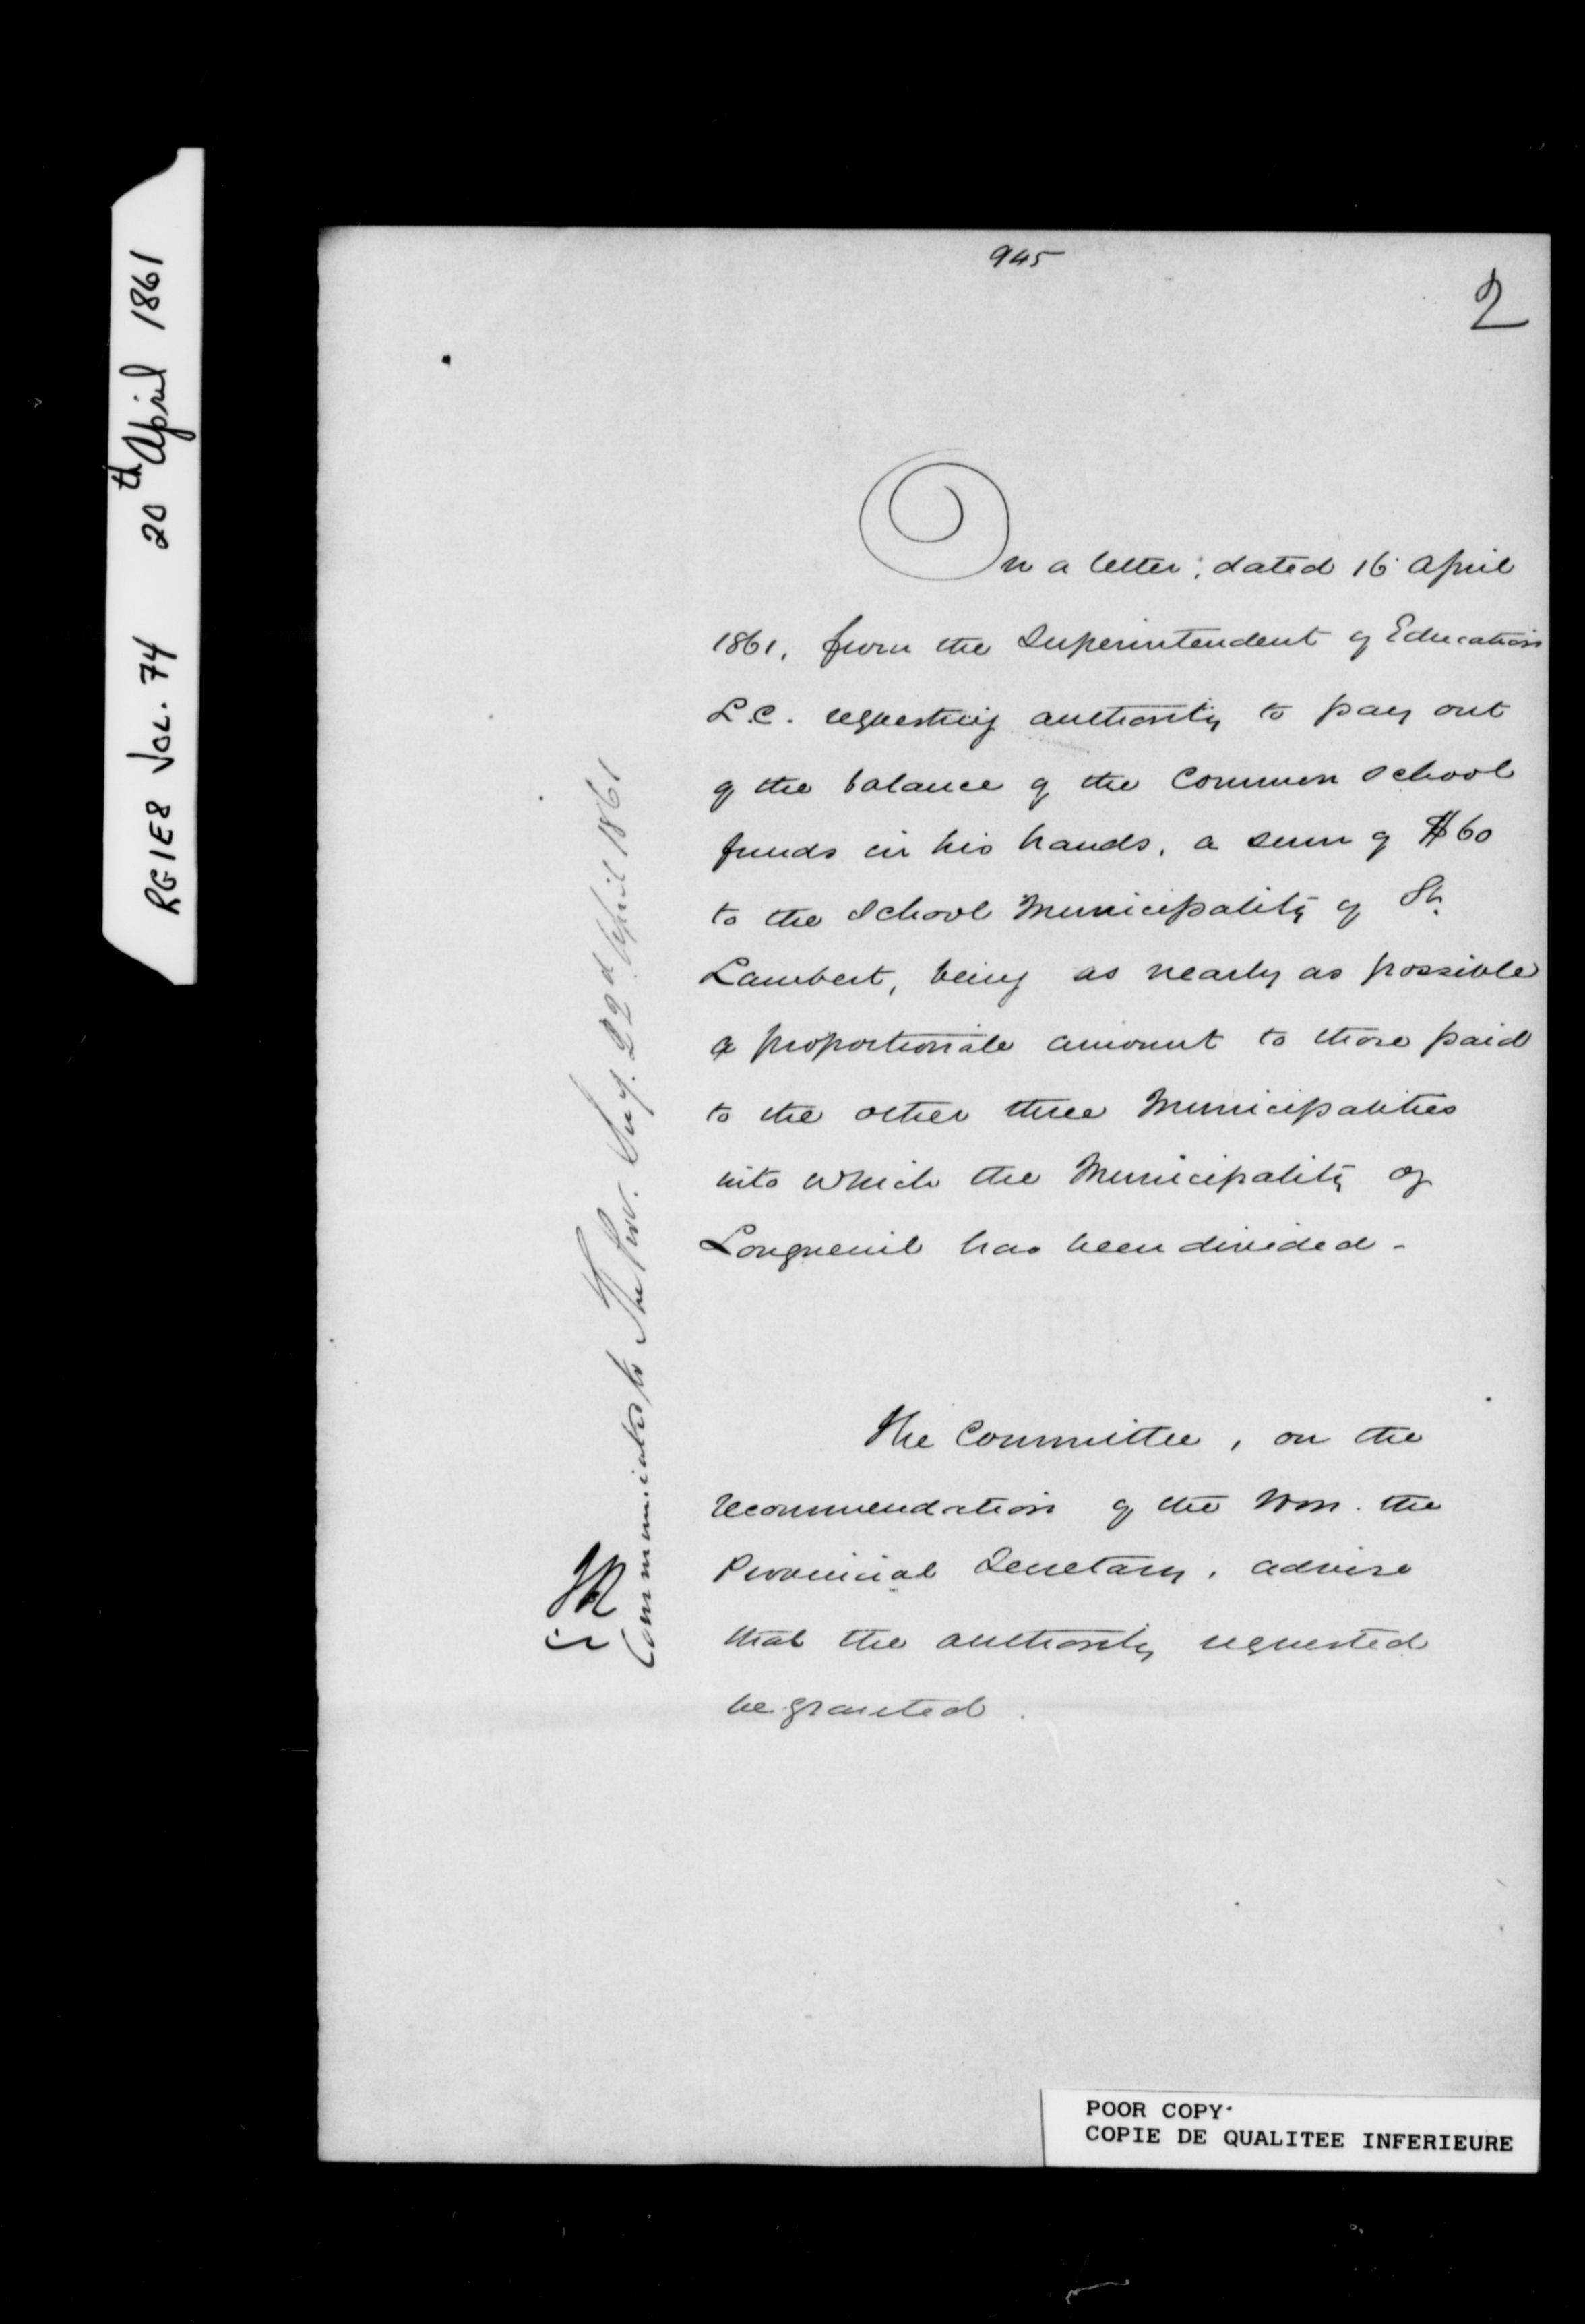 RG1E8 VOL. 74 20th April 1861
945
2
On a letter, dated 16 April
1861, from the Superintendent of Education
L.C. requesting authority to pay out
of the balance of the Common School
funds in his hands, a sum of $60
to the School Municipality of St.
Lambert, being as nearly as possible
a proportionate amount to those paid
to the other three Municipalities
into which the Municipality of
Longueuil has been divided -
The Committee, on the
recommendation of the Hon. the
Provincial Secretary, advise
that the authority requested
be granted.
Communicated to The Prov. Secy. 22d April 1861
POOR COPY
COPIE DE QUALITEE INFERIEURE